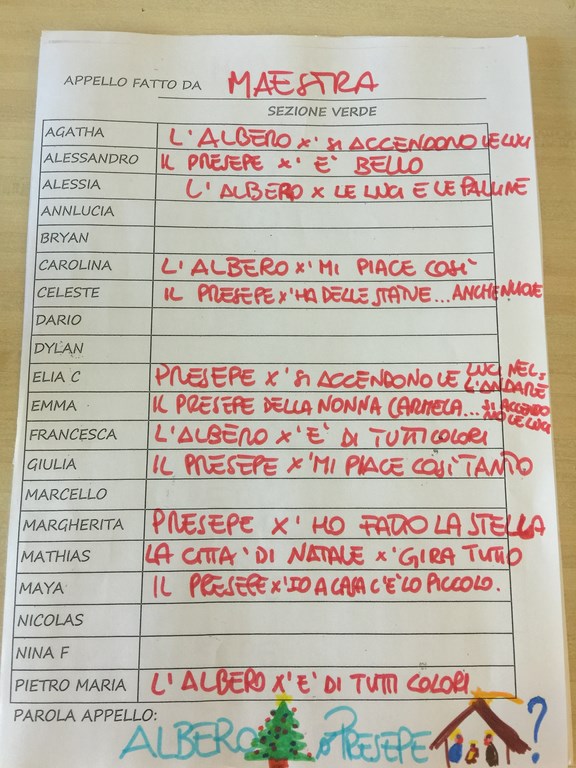 APPELLO FATTO DA MAESTRA
SEZIONE VERDE
AGATHA L'ALBERO X' SI ACCENDONO LE LUCI
ALESSANDRO IL PRESEPE X' E' BELLO
ALESSIA L'ALBERO X LE LUCI E LE PALLINE
ANNLUCIA
BRYAN
CAROLINA L'ALBERO X' MI PIACE COSÌ
CELESTE IL PRESEPE X' HA DELLE STATUE... ANCHE NUOVE
DARIO
DYLAN
ELIA C PRESEPE X' SI ACCENDONO LE LUCI NEL: L'ANDARE
EMMA IL PRESEPE DELLA NONNA CARMELA... SI ACCENDONO LE LUCI
FRANCESCA L'ALBERO X' E' DI TUTTI COLORI
GIULIA IL PRESEPE X' MI PIACE COSI' TANTO
MARCELLO
MARGHERITA PRESEPE X' HO FATTO LA STELLA
MATHIAS LA CITTA' DI NATALE X' GIRA TUTTO
MAYA IL PRESEPE X' IO A CASA C'E' LO PICCOLO.
NICOLAS
NINA F
PIETRO MARIA L'ALBERO X' E' DI TUTTI COLORI
PAROLA APPELLO: ALBERO o PRESEPE ?